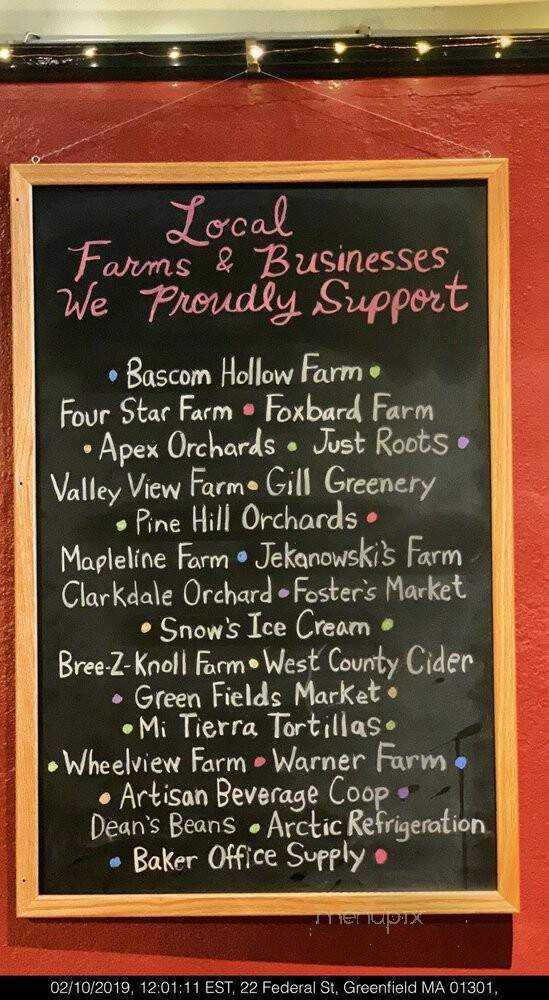 Local
Farms & Businesses
We Proudly Support
• Bascom Hollow Farm •
Four Star Farm • Foxbard Farm
• Apex Orchards • Just Roots •
Valley View Farm • Gill Greenery
• Pine Hill Orchards •
Mapleline Farm • Jekanowski's Farm
Clarkdale Orchard • Foster's Market
• Snow's Ice Cream •
Bree-Z-Knoll Farm • West County Cider
• Green Fields Market •
• Mi Tierra Tortillas •
• Wheelview Farm • Warner Farm •
• Artisan Beverage Coop •
Dean's Beans • Arctic Refrigeration
• Baker Office Supply •
menupix
02/10/2019, 12:01:11 EST, 22 Federal St, Greenfield MA 01301,